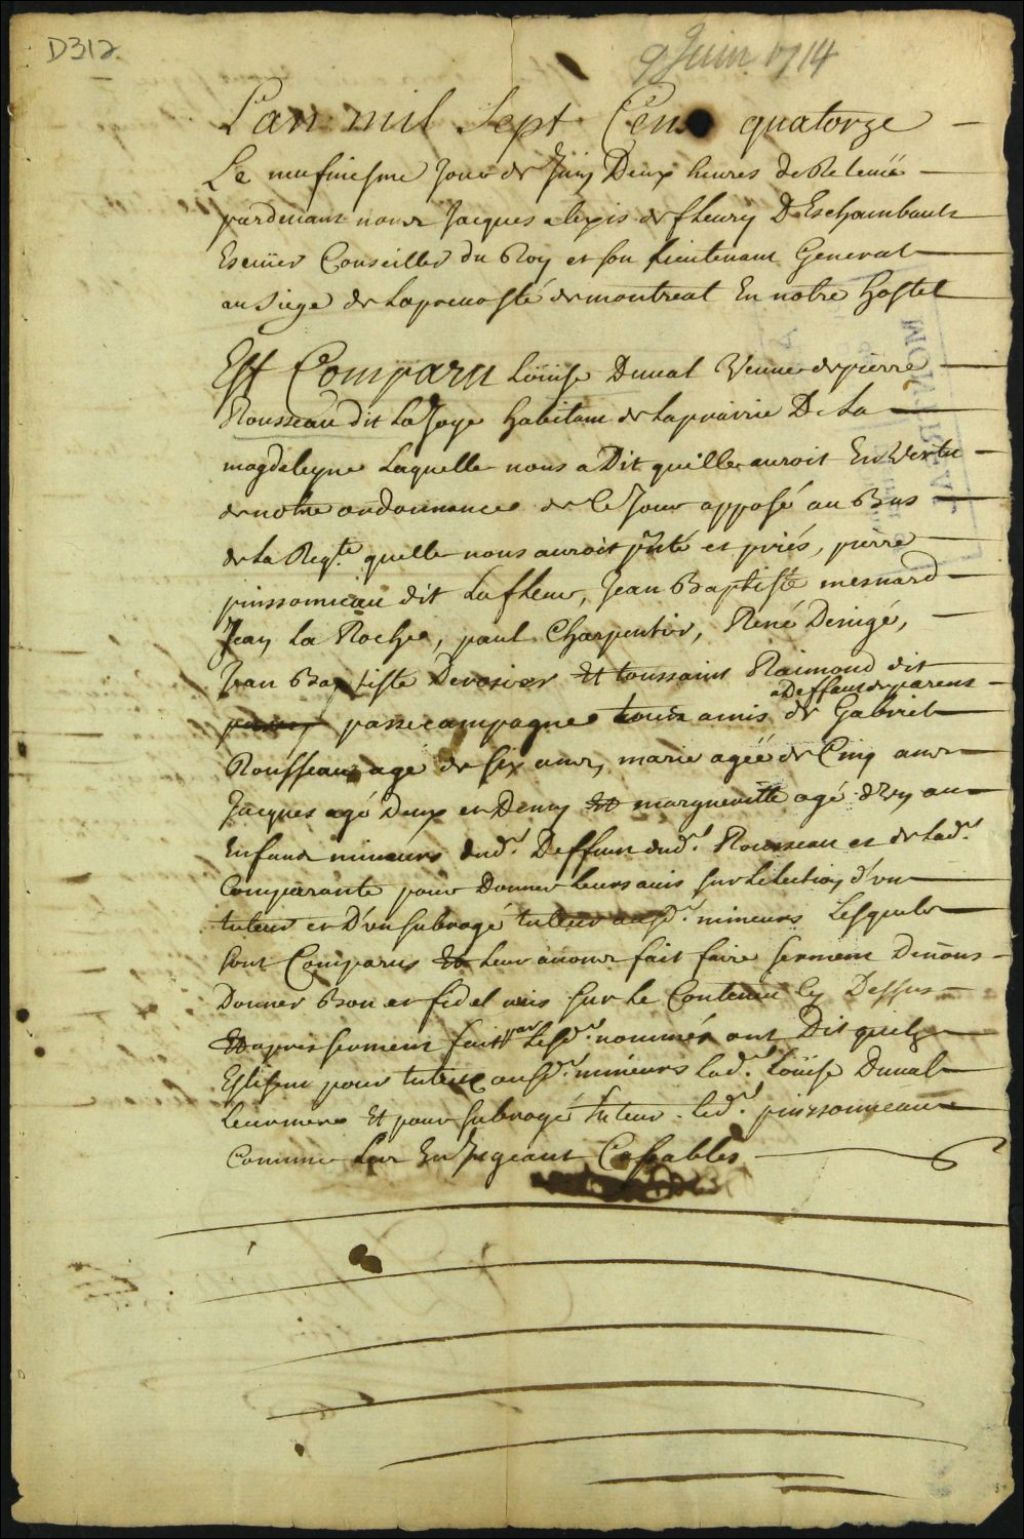 D312
9 Juin 1714
L'an mil Sept Cens quatorze
Le neufviesme Jour de Juin Deux heures de Relevée
pardevant nous Jacques alexis de fleury D'Eschambault
Escuier Conseiller du Roy et son Lieutenant General
au Siege de La prevosté de montreal En notre hostel
Est Comparu Loüise Duval Veuve de pierre
Rousseau dit La Joye habitant de Laprairie De La
magdeleyne Laquelle nous a Dit quelle auroit En Vertu
de notre ordonnance de Ce Jour apposé au Bas
de La Reqte quelle nous auroit pñté et priés, pierre
pinssonneau dit Lafleur, Jean Baptiste mesnard
Jean La Roche, paul Charpentier, René Denigé,
Jean Baptiste Derosier Et toussaint Raimond dit
a Deffaut de parens
passecampagne tous amis de Gabriel
Rousseau agé de six ans, marie agée de Cinq ans
Jacques agé Deux et Demy Et margueritte agé D'un an
Enfans mineurs dud. Deffunt dud. Rousseau et de Lad.
Comparante pour Donner Leurs avis sur Lelection d'un
tuteur et D'un subrogé tuteur ausd. mineurs Lesquels
sont Comparus Et Leur avons fait faire serment De nous
Donner Bon et fidel avis sur Le Contenu Cy Dessus
Et apres serment fait par Lesd. nommés ont Dit quils
Eslisent pour tuteur ausd. mineurs Lad. Loüise Duval
Leur mere Et pour subrogé tuteur led. pinssonneau
Comme Les En Jugeant Capables